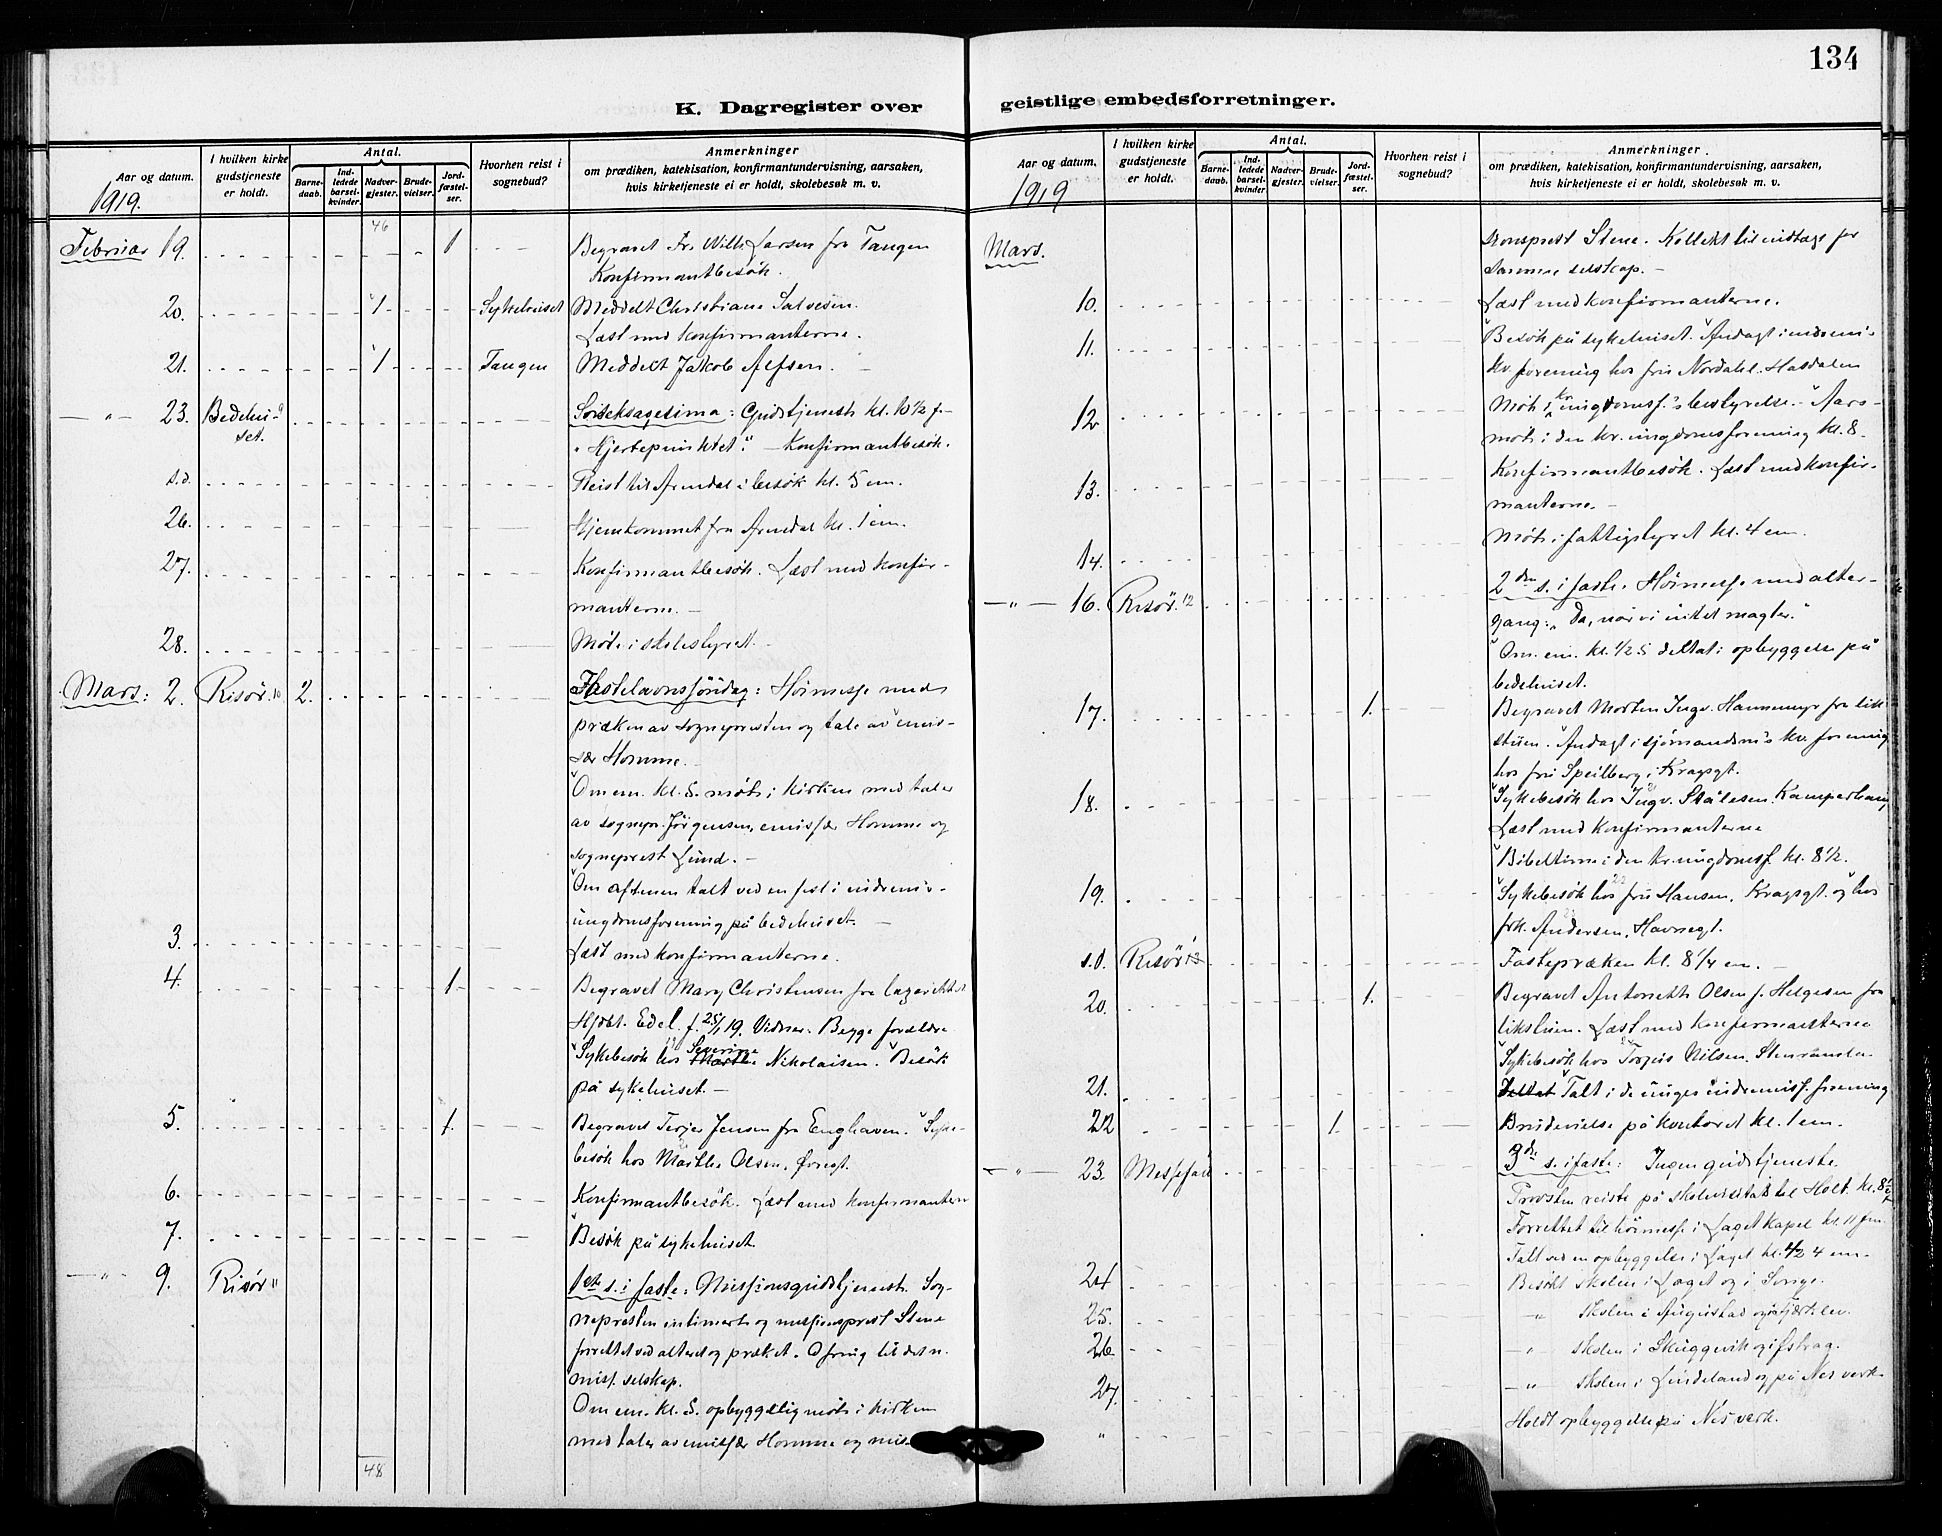 134
K. Dagregister over geistlige embedsforretninger.
Aar og datum.
I hvilken kirke gudstjeneste er holdt.
Antal.
Barnedaab.
Indledede barselkvinder.
Nadvergjester.
Brudevielser.
Jordfæstelser.
Hvorhen reist i sognebud?
Anmerkninger
om prædiken, katekisation, konfirmantundervisning, aarsaken,
hvis kirketjeneste ei er holdt, skolebesøk m. v.
1919.
46
Februar 19. 1 Begravet Fr. Wilh. Larsen fra Tangen
Konfirmantbesök.
20. 1 Sykehuset Meddelt Christiane Salvesen.
Læst med konfirmanterne.
21. 1 Tangen Meddelt Jakob Alfsen.
— " — 23. Bedehuset. Seksagesima: Gudstjeneste kl. 10 ½ f.
"Hjertepunktet". — Konfirmantbesök.
s.d. Reist til Arendal i besök kl. 5 em.
26. Hjemkommet fra Arendal kl. 1 em.
27. Konfirmantbesök. Læst med konfir-
manterne. —
28. Möte i skolestyret. —
Mars: 2. Risör. 10 2. Fastelavnssöndag: Höimesse med
præken av sognepresten og tale av emis-
sær Homme.
Om em. kl. 5. möte i kirken med taler
av sognepr. Jörgensen, emissær Homme og
sogneprest Lund. —
Om aftenen talt ved en fest i indremis-
ungdomsforening på bedehuset. —
3. Læst med konfirmanterne.
4. 1. Begravet Mary Christensen fra lazarettet
Hjdbt. Edel. f. 25/1 19. Vidner: Begge forældre.
Sykebesök hos Severine Nikolaisen. Besök
på sykehuset. —
5. 1. Begravet Terjer Jensen fra Enghaven. Syke-
besök hos Marthe Olsen, Övregt.
6. Konfirmantbesök. Læst med konfirmanterne
7. Besök på sykehuset.
— " — 9. Risör 11 1ste s. i faste: Missionsgudstjeneste. Sog-
nepresten intimerte og missionsprest Stene
forrettet ved alteret og præket. Ofring til det n.
miss. selskap.
Om em. kl. 5. opbyggelig möte i kirken
med taler av emissær Homme og mis-
48
Aar og datum.
I hvilken kirke gudstjeneste er holdt.
Antal.
Barnedaab.
Indledede barselkvinder.
Nadvergjester.
Brudevielser.
Jordfæstelser.
Hvorhen reist i sognebud?
Anmerkninger.
om prædiken, katekisation, konfirmantundervisning, aarsaken,
hvis kirketjeneste ei er holdt, skolebesøk m. v.
1919
Mars. sionsprest Stene. Kollekt til indtægt for
samme selskap. —
10. Læst med konfirmanterne.
11. Besök på sykehuset. Andagt i indremi-
kv. forening hos fru Nordahl. Hasdalen
12 Möte i kr. ungdomsf.'s bestyrelse. — Aars-
möte i den kr. ungdomsforening kl. 8.
13. Konfirmantbesök. Læst med konfir-
manterne. —
14. Möte i fattigstyret kl. 4 em.
— " — 16. Risör. 12 2den s. i faste. Höimesse med alter-
gang: "Da, når vi intet magter."
Om em. kl. ½5 deltat i opbyggelse på
bedehuset.
17. 1. Begravet Morten Ingv. Hannemyr fra lik-
stuen. Andagt i sjömandsmis kv. forening
hos fru Speilberg i Kragsgt.
18. Sykebesök hos Ingv. Stålesen. Kamperhaug
Læst med konfirmanterne
Bibeltime i den kr. ungdomsf. kl. 8½.
19. Sykebesök hos fru Hansen, Kragsgt. og hos
frk. Andersen, Havnegt.
s.d. Risör 13 Fastepræken kl. 8¼ em. —
20. 1. Begravet Antonette Olsen f. Helgesen fra
likstuen. Læst med konfirmanterne
Sykebesök hos Torjus Nilsen.
21. Deltat Talt i de unges indremisf. forening
22 1. Brudevielse på kontoret kl. 1 em.
— " — 23. Messefald 3de s. i faste: Ingen gudstjeneste.
Provsten reiste på skolevisitats til Holt. kl. 8½
Forrettet til höimesse i Laget kapel kl. 11 fm.
Talt ved en opbyggelse i Laget kl. 4 em.
24 Besökt skolen i Laget og i Songe.
25. — " — skolen i Augustad og i Fjærkleiv.
26 — " — skolen i Skuggevik og i Fosstrag.
27. — " — skolen i Lindeland og på Nes verk.
" Holdt opbyggelse på Nes verk.